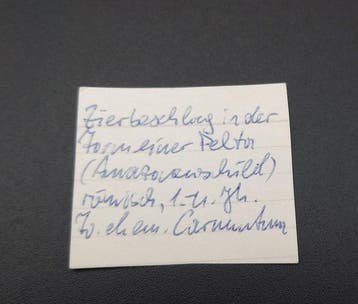 Zierbeschlag in der
Form einer Pelta
(Amazonenschild)
römisch, 1.-4. Jh.
Fo. ehem. Carnuntum